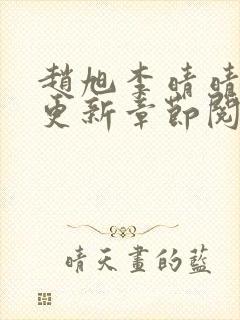 趙旭李晴晴
更新章節閱
晴天畫的藍